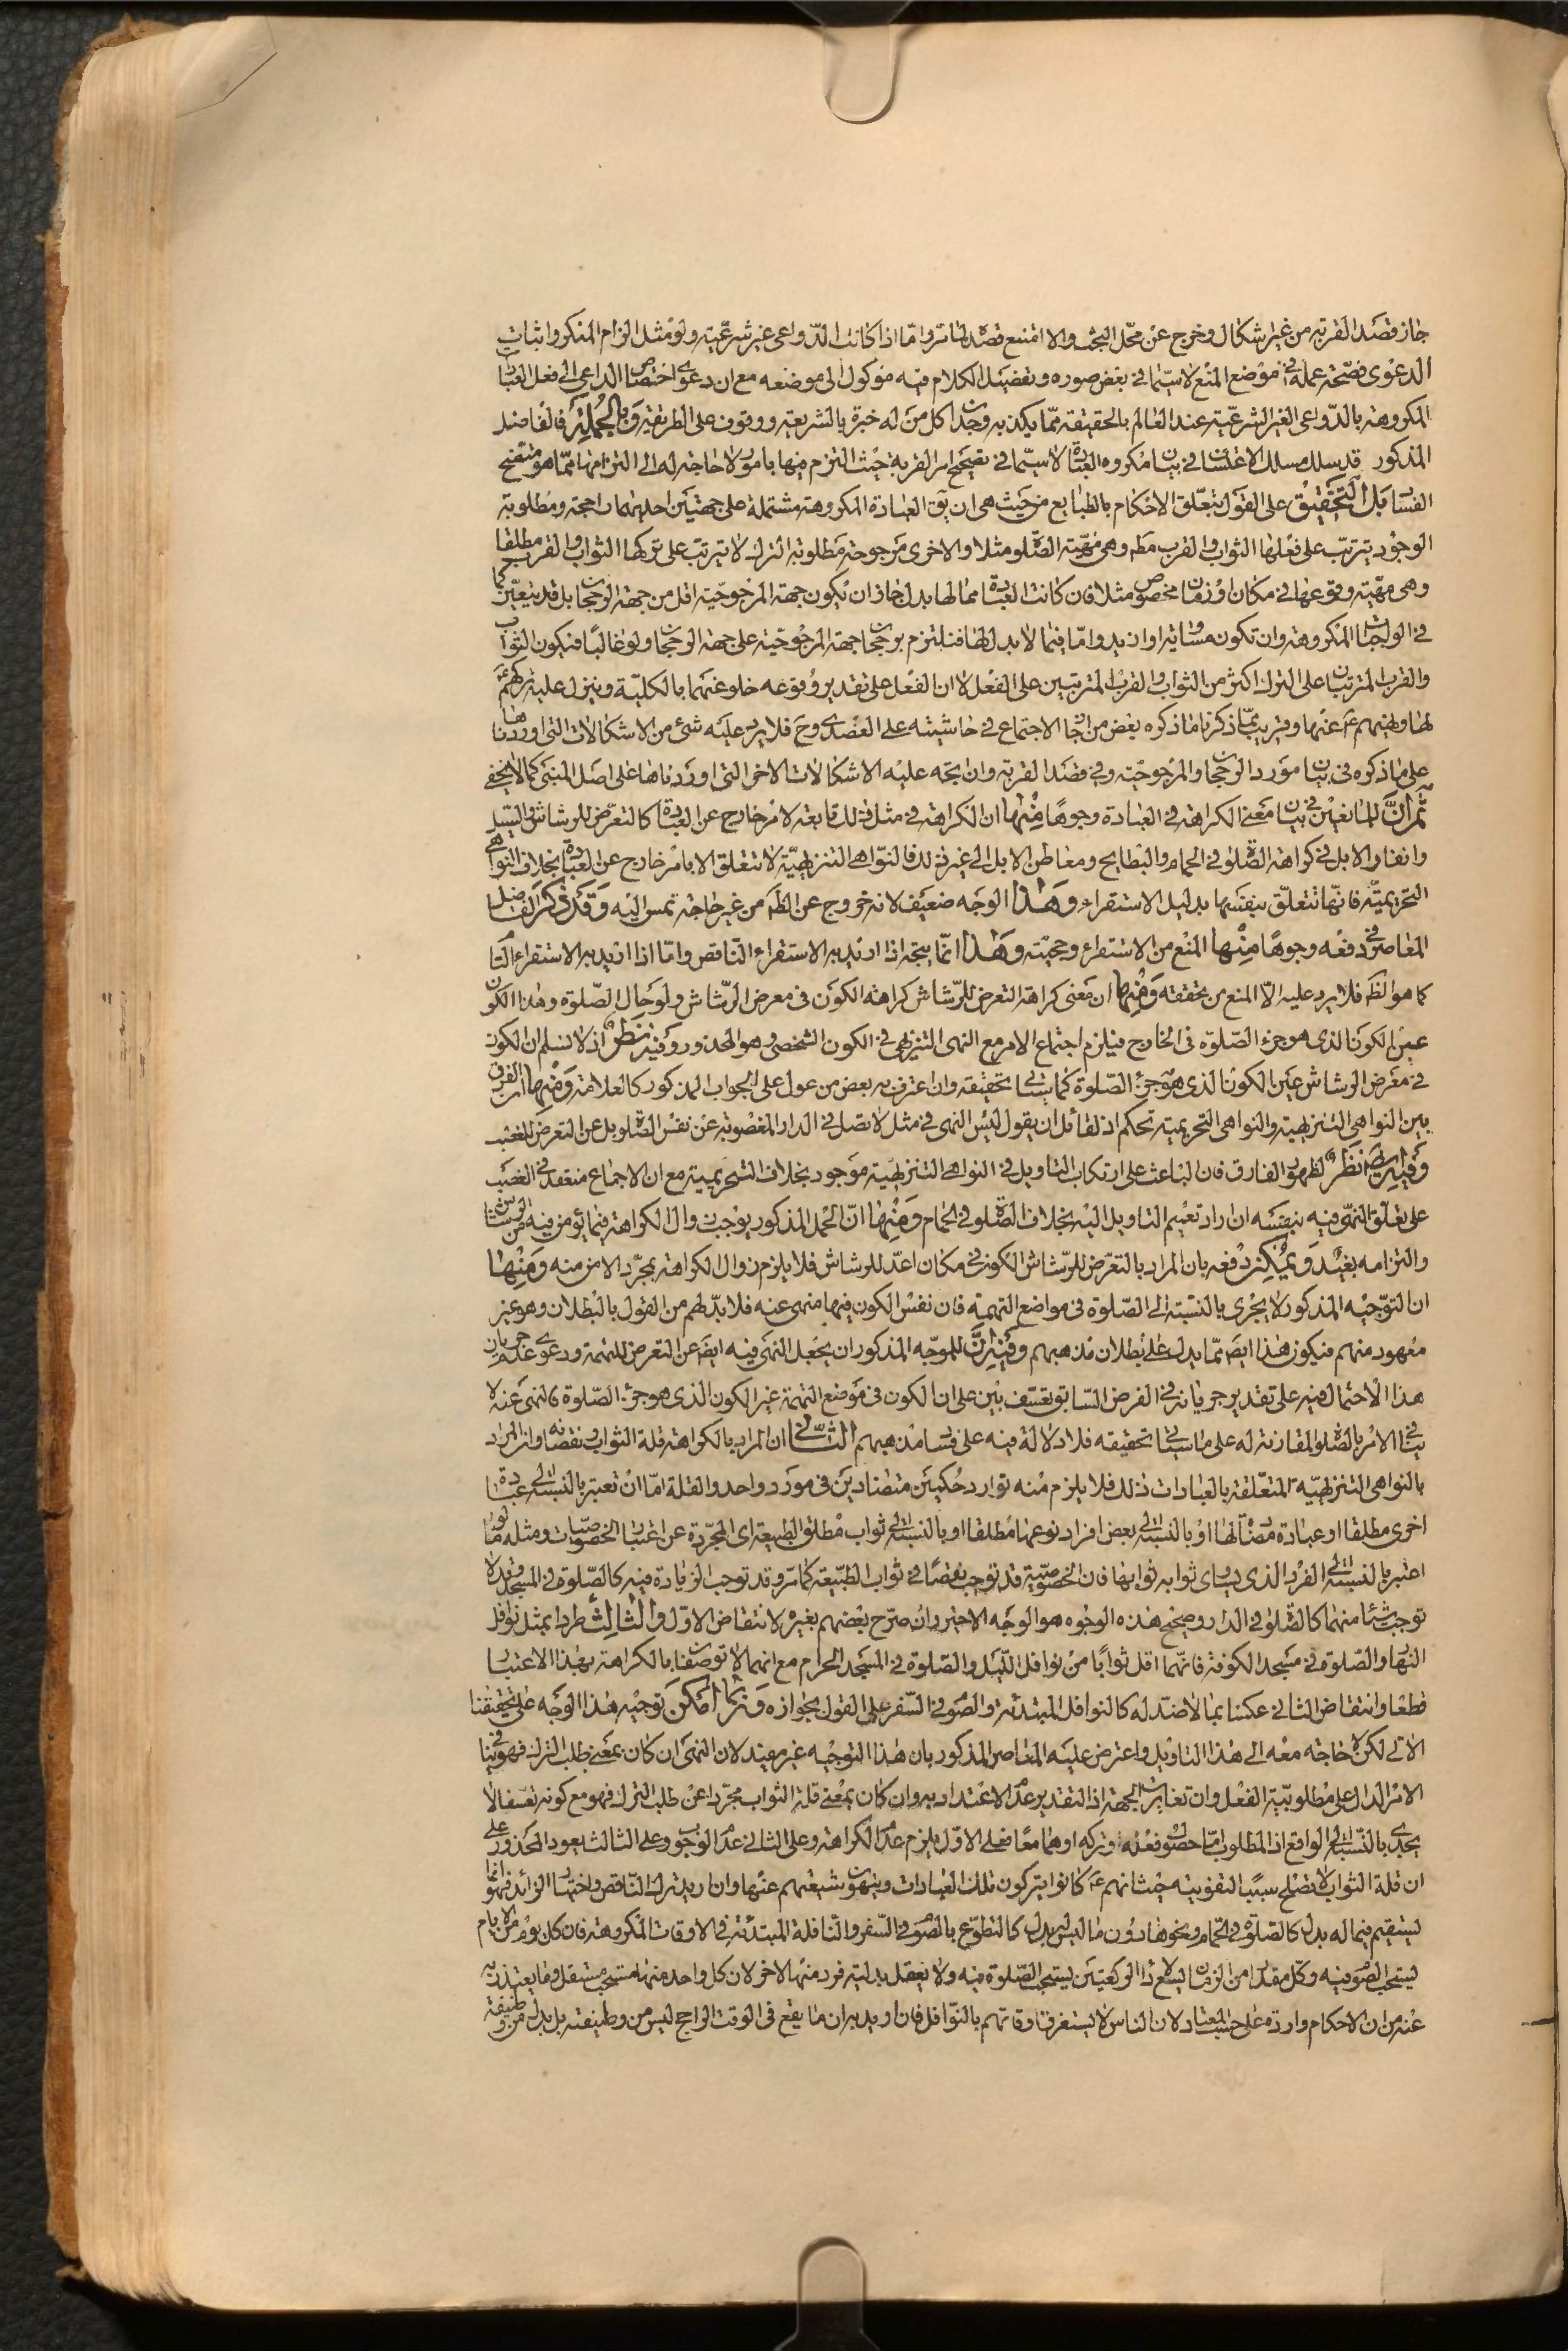 جاز قصد القربة من غير اشكال وخرج عن محل البحث والا امتنع قصدها لما مر واما اذا كانت الدواعى غير شرعية ولو مثل الزام المنكر واثبات
الدعوى فصحة عمله فى موضع المنع لا سيما فى بعض صوره وتفصيل الكلام فيه موكول الى موضعه مع ان دعوى اختصاص الداعى الى فعل العبادات
المكروهة بالدواعى الغير الشرعية عند العالم بالحقيقة مما يكذبه وجدان كل من له خبرة بالشريعة ووقوف على الطريقة وبالجملة فالفاضل
المذكور قد سلك مسلك الاغتساف فى بيان مكروه العبادة لا سيما فى تصحيح امر القربة حيث التزم فيها بامور لا حاجة له الى التزامها مما هو متضح
الفساد بل التحقيق على القول بتعلق الاحكام بالطبايع من حيث هى ان يق العبادة المكروهة مشتملة على جهتين احديهما راجحة ومطلوبة
الوجود يترتب على فعلها الثواب والقرب مطه وهى مهية الصلوة مثلا والاخرى مرجوحة مطلوبة الترك لا يترتب على تركها الثواب والقرب مطلقا
وهى مهية وقوعها فى مكان او زمان مخصوص مثلا فان كانت العبادة مما لها بدل جاز ان يكون جهة المرجوحية اقل من جهة الرجحان بل قد يتعين كما
فى الواجبات المكروهة وان تكون مساوية او ازيد واما فيما لا بدل لها فنلتزم برجحان جهة المرجوحية على جهة الرجحان ولو غالبا فيكون الثواب
والقرب المترتبان على الترك اكثر من الثواب والقرب المترتبين على الفعل لا ان الفعل على تقدير وقوعه خلو عنهما بالكلية وينزل عليه تركهم ع
لها ونهيهم ع عنها وقريب مما ذكرنا ما ذكره بعض من اجاز الاجتماع فى حاشيته على العضدى وح فلا يرد عليه شئ من الاشكالات التى اوردناها
على ما ذكره فى بيان مورد الرجحان والمرجوحية وفى قصد القربة وان يتجه عليه الاشكالات الاخر التى اوردناها على اصل المبنى كما لا يخفى
ثم ان للمانعين فى بيان معنى الكراهة فى العبادة وجوها منها ان الكراهة فى مثل ذلك تابعة لامر خارج عن العبادة كالتعرض للرشاش والسيل
وانفار الابل فى كراهة الصلوة فى الحمام والبطايح ومعاطن الابل الى غير ذلك فالنواهى التنزيهية لا تتعلق الا بامر خارج عن العبادة بخلاف النواهى
التحريمية فانها تتعلق بنفسها بدليل الاستقراء وهذا الوجه ضعيف لانه خروج عن الظ من غير حاجة تمس اليه وقد ذكر الفاضل
المعاصر فى دفعه وجوها منها المنع من الاستقراء وحجيته وهذا انما يتجه اذا اريد به الاستقراء الناقص واما اذا اريد به الاستقراء التام
كما هو الظ فلا يرد عليه الا المنع من تحققه ومنها ان معنى كراهة التعرض للرشاش كراهة الكون فى معرض الرشاش ولو حال الصلوة وهذا الكون
عين الكون الذى هو جزء الصلوة فى الخارج فيلزم اجتماع الامر مع النهى التنزيهى فى الكون الشخصى وهو المحذور وفيه نظر اذ لا نسلم ان الكون
فى معرض الرشاش عين الكون الذى هو جزء الصلوة كما سيأتى تحقيقه وان اعترف به بعض من عول على الجواب المذكور كالعلامة ومنها ان الفرق
بين النواهى التنزيهية والنواهى التحريمية تحكم اذ لقائل ان يقول ليس النهى فى مثل لا تصل فى الدار المغصوبة عن نفس الصلوة بل عن التعرض للغصب
وفيه ايض نظر لظهور الفارق فان الباعث على ارتكاب التاويل فى النواهى التنزيهية موجود بخلاف التحريمية مع ان الاجماع منعقد فى الغصب
على تعلق النهى فيه بنفسه ان اراد تعميم التاويل اليه بخلاف الصلوة فى الحمام ومنها ان الحمل المذكور يوجب زوال الكراهة فيما يؤمن فيه من الرشاش
والتزامه بعيد ويمكن دفعه بان المراد بالتعرض للرشاش الكون فى مكان اعد للرشاش فلا يلزم زوال الكراهة بمجرد الامن منه ومنها
ان التوجيه المذكور لا يجرى بالنسبة الى الصلوة فى مواضع التهمة فان نفس الكون فيها منهى عنه فلا بد لهم من القول بالبطلان وهو غير
معهود منهم فيكون هذا ايض مما يدل على بطلان مذهبهم وفيه ان للموجه المذكور ان يجعل النهى فيه ايض عن التعرض للتهمة ودعوى عدم جريان
هذا الاحتمال فيه على تقدير جريانه فى الفرض السابق تعسف بين على ان الكون فى موضع التهمة غير الكون الذى هو جزء الصلوة فالنهى عنه لا
ينافى الامر بالصلوة المقارنة له على ما سيأتى تحقيقه فلا دلالة فيه على فساد مذهبهم الثانى ان المراد بالكراهة قلة الثواب ونقصانه وان المراد
بالنواهى التنزيهية المتعلقة بالعبادات ذلك فلا يلزم منه توارد حكمين متضادين فى مورد واحد والقلة اما ان تعتبر بالنسبة الى عبادة
اخرى مطلقا او عبادة مضت امثالها او بالنسبة الى بعض افراد نوعها مطلقا او بالنسبة الى ثواب مطلق الطبيعة اى المجردة عن اعتبار الخصوصيات ومثله ما لو
اعتبر بالنسبة الى الفرد الذى يساوى ثوابه ثوابها فان الخصوصية قد توجب نقصا فى ثواب الطبيعة كما مر وقد توجب الزيادة فيه كالصلوة فى المسجد وقد لا
توجب شيئا منهما كالصلوة فى الدار وصحيح هذه الوجوه هو الوجه الاخير وان صرح بعضهم بغيره لانتقاض الاول والثالث طردا بمثل نوافل
النهار والصلوة فى مسجد الكوفة فانهما اقل ثوابا من نوافل الليل والصلوة فى المسجد الحرام مع انهما لا توصفان بالكراهة بهذا الاعتبار
قطعا وانتقاض الثانى عكسا بما لا ضد له كالنوافل المبتدئة والصوم فى السفر على القول بجوازه وربما امكن توجيه هذا الوجه على تحقيقنا
الاتى لكن لا حاجة معه الى هذا التاويل واعترض عليه المعاصر المذكور بان هذا التوجيه غير مفيد لان النهى ان كان بمعنى طلب الترك فهو ينافى
الامر الدال على مطلوبية الفعل وان تغايرت الجهة اذ التقدير عدم الاعتداد به وان كان بمعنى قلة الثواب مجردا عن طلب الترك فهو مع كونه تعسفا لا
يجدى بالنسبة الى الواقع اذ المطلوب اما حصول فعله او تركه او هما معا فعلى الاول يلزم عدم الكراهة وعلى الثانى عدم الوجوب وعلى الثالث يعود المحذور على
ان قلة الثواب لا تصلح سببا لتفويته حيث انهم ع كانوا يتركون تلك العبادات وينهون شيعتهم عنها وان اريد ترك الناقص واختيار الزائد فهو انما
يستقيم فيما له بدل كالصلوة فى الحمام ونحوها دون ما ليس له بدل كالتطوع بالصوم فى السفر والنافلة المبتدئة فى الاوقات المكروهة فان كل يوم من الايام
يستحب الصوم فيه وكل مقدار من الزمان يسع اداء الركعتين يستحب الصلوة فيه ولا يعقل بدلية فرد منها لاخر لان كل واحد منها مستحب مستقل وما يعتذر به
عنه من ان الاحكام واردة على حسب المعتاد لان الناس لا يستغرق اوقاتهم بالنوافل فان اريد به ان ما يقع فى الوقت الراجح ليس من وظيفته بل بدل من وظيفة